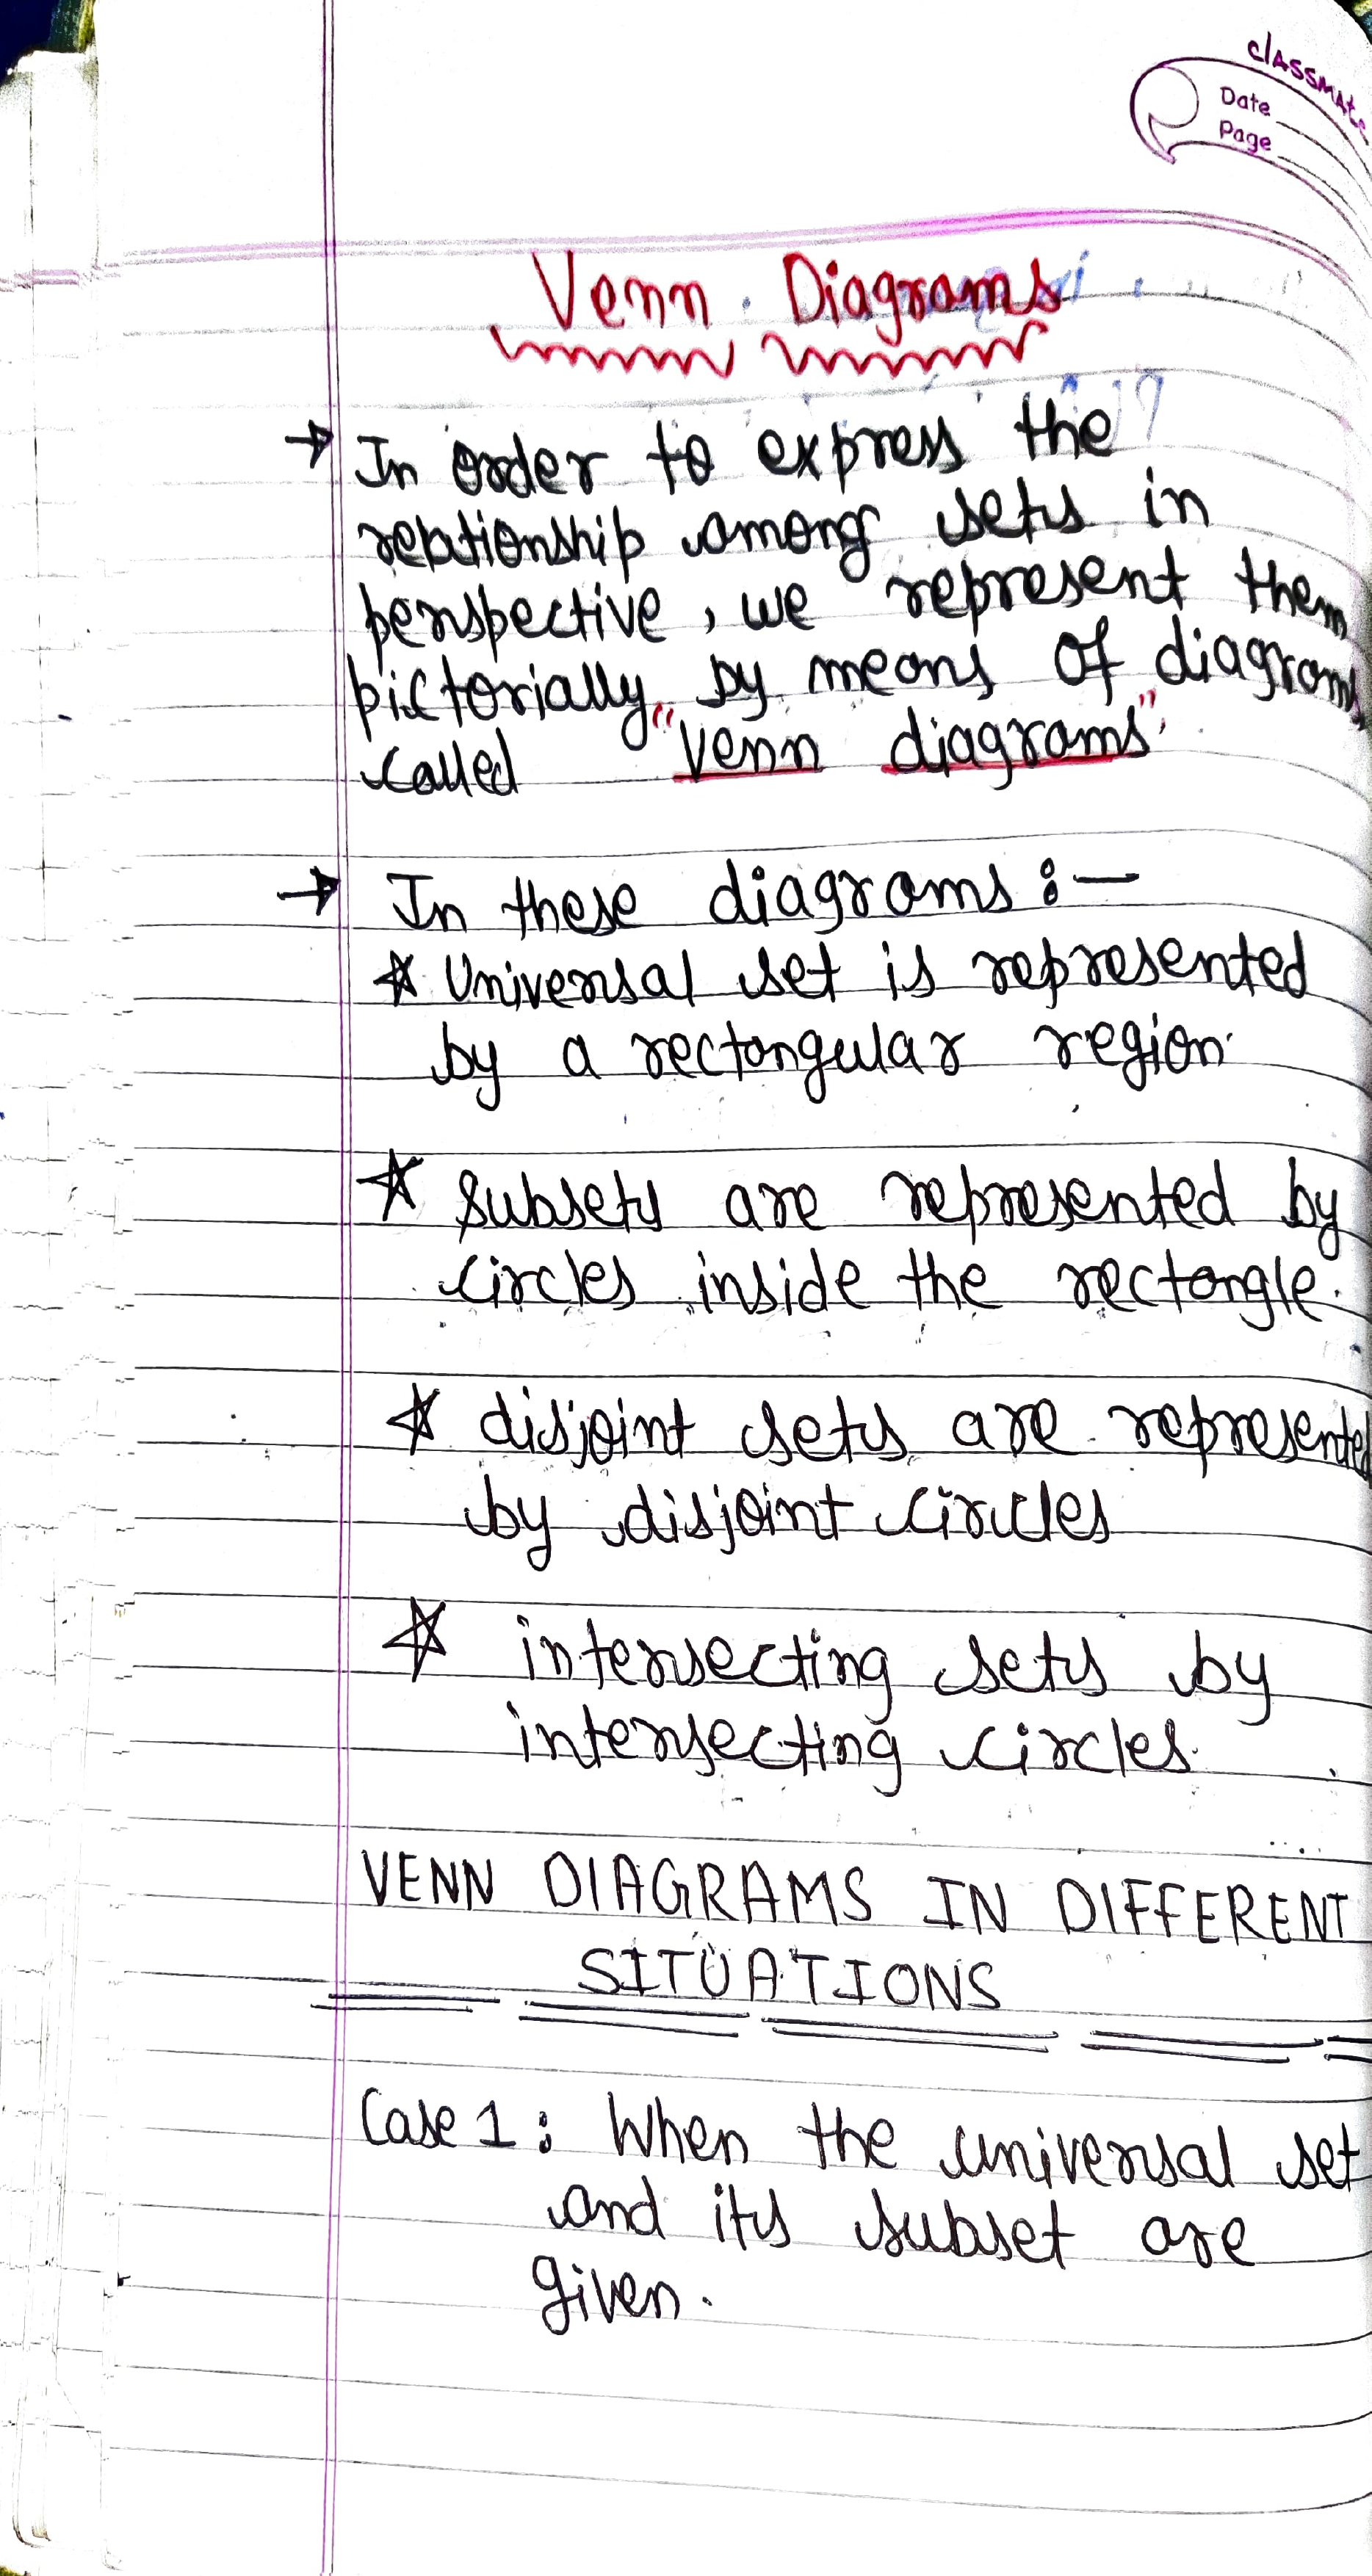 classmate
Date
Page
Venn Diagrams
→ In order to express the
relationship among sets in
perspective, we represent them
pictorially by means of diagrams
called "Venn diagrams".
→ In these diagrams :-
* Universal set is represented
by a rectangular region.
* Subsets are represented by
circles inside the rectangle.
* disjoint sets are represented
by disjoint circles
* intersecting sets by
intersecting circles.
VENN DIAGRAMS IN DIFFERENT
SITUATIONS
Case 1: When the universal set
and its subset are
given.